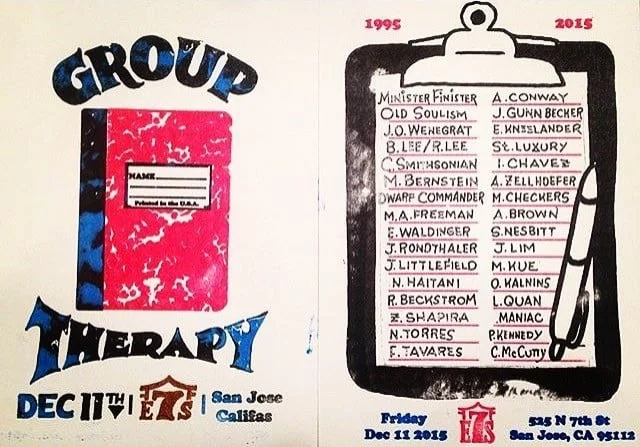 GROUP
NAME
Printed in the U.S.A.
THERAPY
DEC 11TH | E7S | San Jose
Califas
1995 2015
MINISTER FINISTER
OLD SOULISM
J.O. WEHEGRAT
B. LEE/R. LEE
C. SMITHSONIAN
M. BERNSTEIN
DWARF COMMANDER
M.A. FREEMAN
E. WALDINGER
J. RONDTHALER
J. LITTLEFIELD
N. HAITANI
R. BECKSTROM
Z. SHAPIRA
N. TORRES
F. TAVARES
A. CONWAY
J. GUNN BECKER
E. KNEELANDER
St. LUXURY
I. CHAVEZ
A. ZELLHOEFER
M. CHECKERS
A. BROWN
S. NESBITT
J. LIM
M. KUE
O. KALNINS
L. QUAN
MANIAC
P. KENNEDY
C. McCUTTY
Friday
Dec 11 2015
E7S
525 N 7th St
San Jose, CA 95112